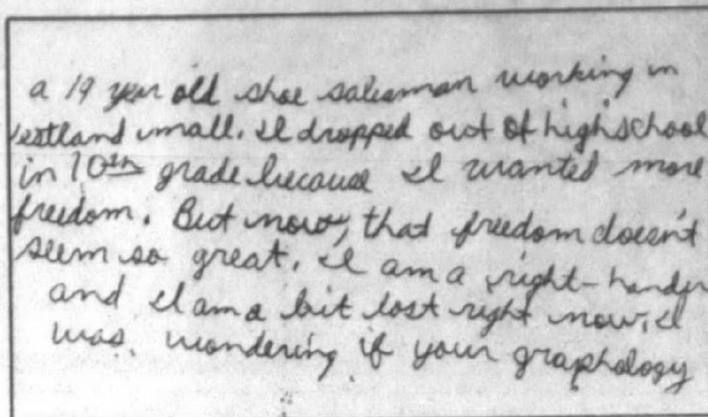 a 19 year old shoe salesman working in
estland mall. I dropped out of highschool
in 10th grade because I wanted more
freedom. But now, that freedom doesn't
seem so great. I am a right-hander
and I am a bit lost right now, I
was wondering if your graphology